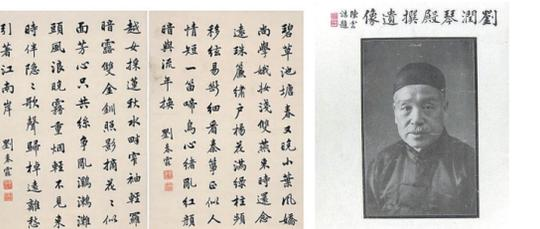 劉潤琴殿撰遺像
碧草池塘春又晚小葉風嬌
尚學娥妝淺雙燕來時還念
遠珠簾繡戶楊花滿綠柱頻
移絃易斷細看秦箏正似人
情短一曲啼烏心緒亂紅顏
暗與流年換 劉春霖
越女採蓮秋水畔窄袖輕羅
暗露雙金釧照影摘花〻似
面芳心只共絲爭亂鸂鶒灘
頭風浪晚霧重烟輕不見來
時伴隱〻歌聲歸棹遠離愁
引著江南岸 劉春霖